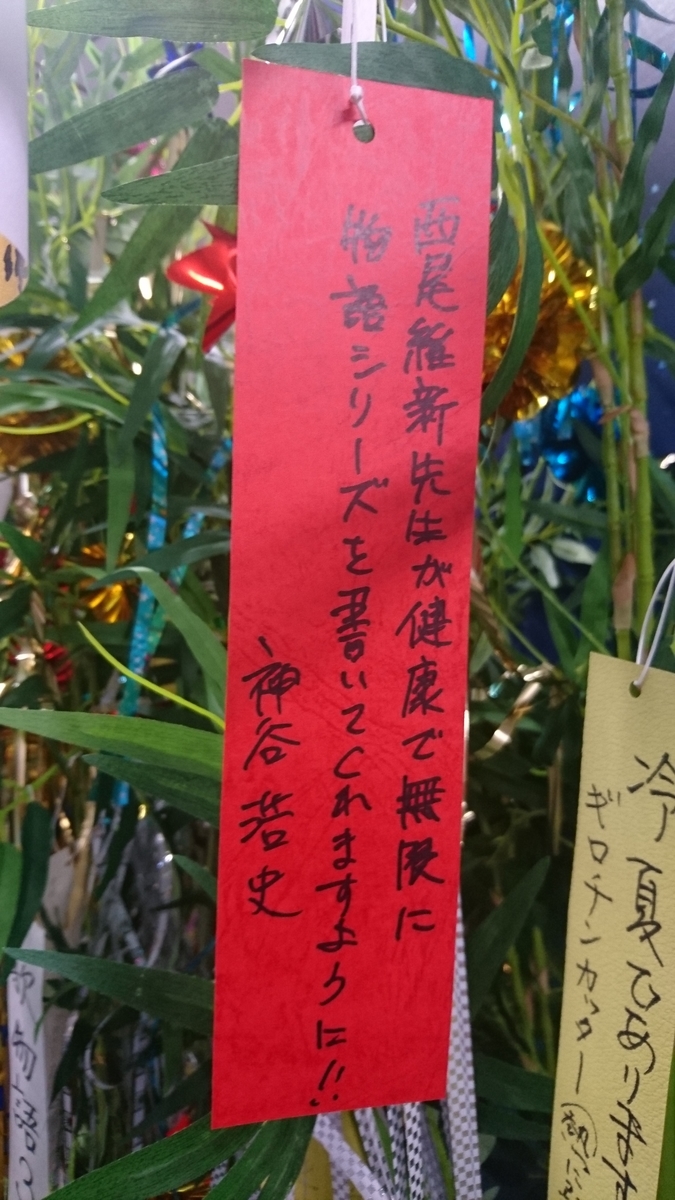 西尾維新先生が健康で無限に
物語シリーズを書いてくれますように!!
神谷浩史
冷夏でありませ
ギロチンカッター